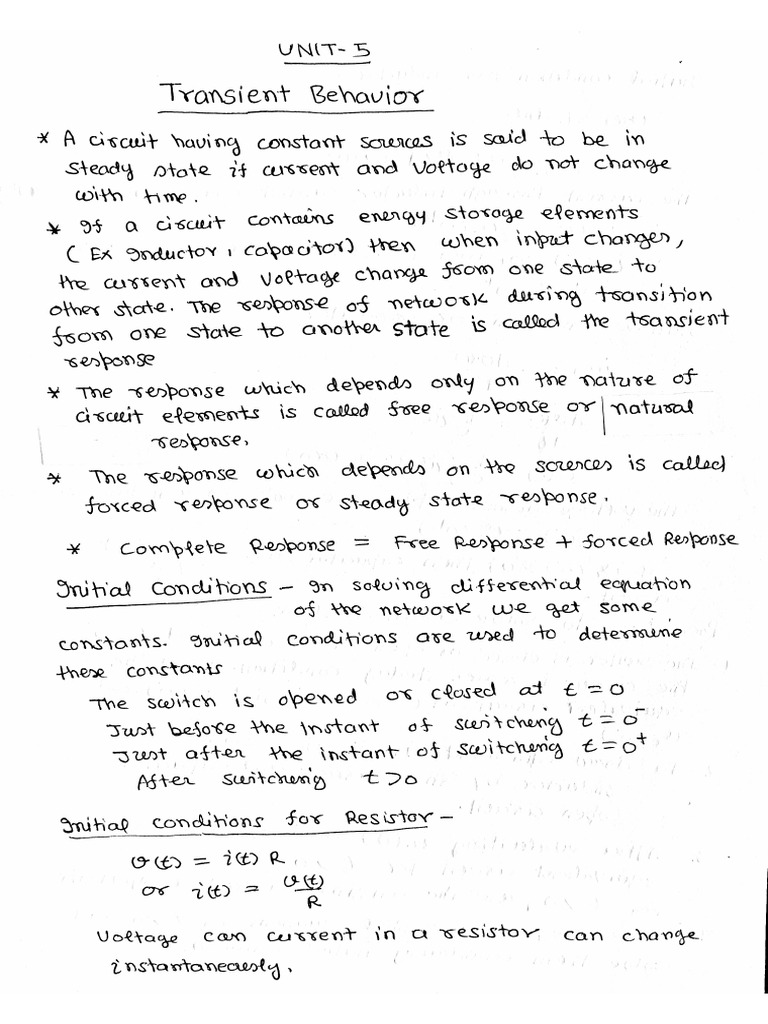 UNIT-5
Transient Behavior
* A circuit having constant sources is said to be in
steady state if current and voltage do not change
with time.
* If a circuit contains energy storage elements
(Ex Inductor, capacitor) then when input changes,
the current and voltage change from one state to
other state. The response of network during transition
from one state to another state is called the transient
response
* The response which depends only on the nature of
circuit elements is called free response or natural
response.
* The response which depends on the sources is called
forced response or steady state response.
* Complete Response = Free Response + forced Response
Initial Conditions – In solving differential equation
of the network we get some
constants. Initial conditions are used to determine
these constants
The switch is opened or closed at t=0
Just before the instant of switching t=0⁻
Just after the instant of switching t=0⁺
After switching t>0
Initial conditions for Resistor –
v(t) = i(t) R
or i(t) = v(t)/R
Voltage can current in a resistor can change
instantaneously.